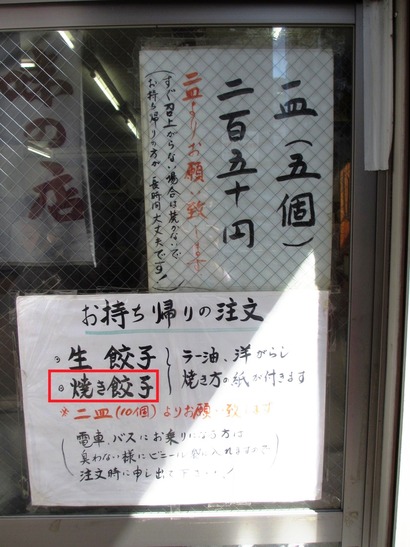 の店
一皿(五個)
二百五十円
二皿よりお願い致します
(すぐ召上がらない場合は焼かないで
お持ち帰りの方が長時間大丈夫です!)
お持ち帰りの注文
生餃子
焼き餃子
ラー油、洋がらし
焼き方の紙が付きます
※二皿(10個)よりお願い致します
(電車、バスにお乗りになる方は
臭わない様にビニール袋に入れますので
注文時に申し出て下さい!)